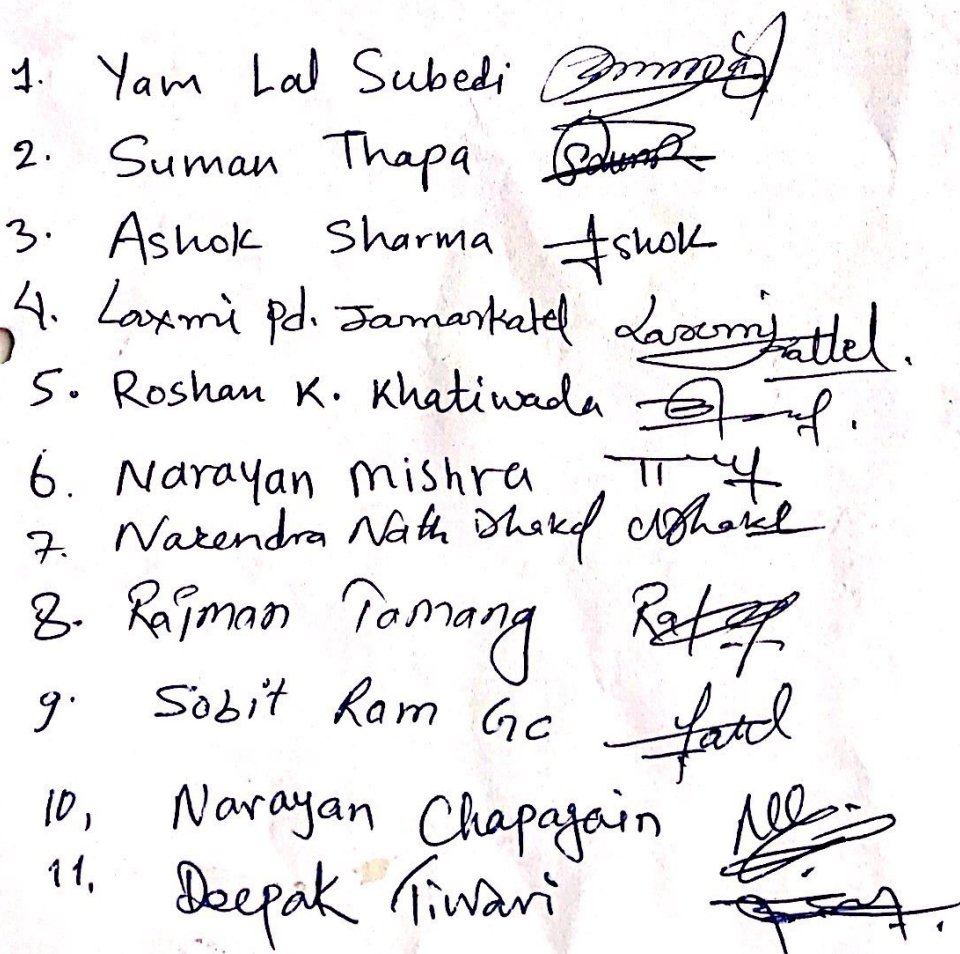 1. Yam Lal Subedi
2. Suman Thapa
3. Ashok Sharma Ashok
4. Laxmi Pd. Jamarkatel Laxmi
5. Roshan K. Khatiwada
6. Narayan Mishra
7. Narendra Nath Dhakal
8. Rajman Tamang
9. Sobit Ram GC
10, Narayan Chapagain
11, Deepak Tiwari